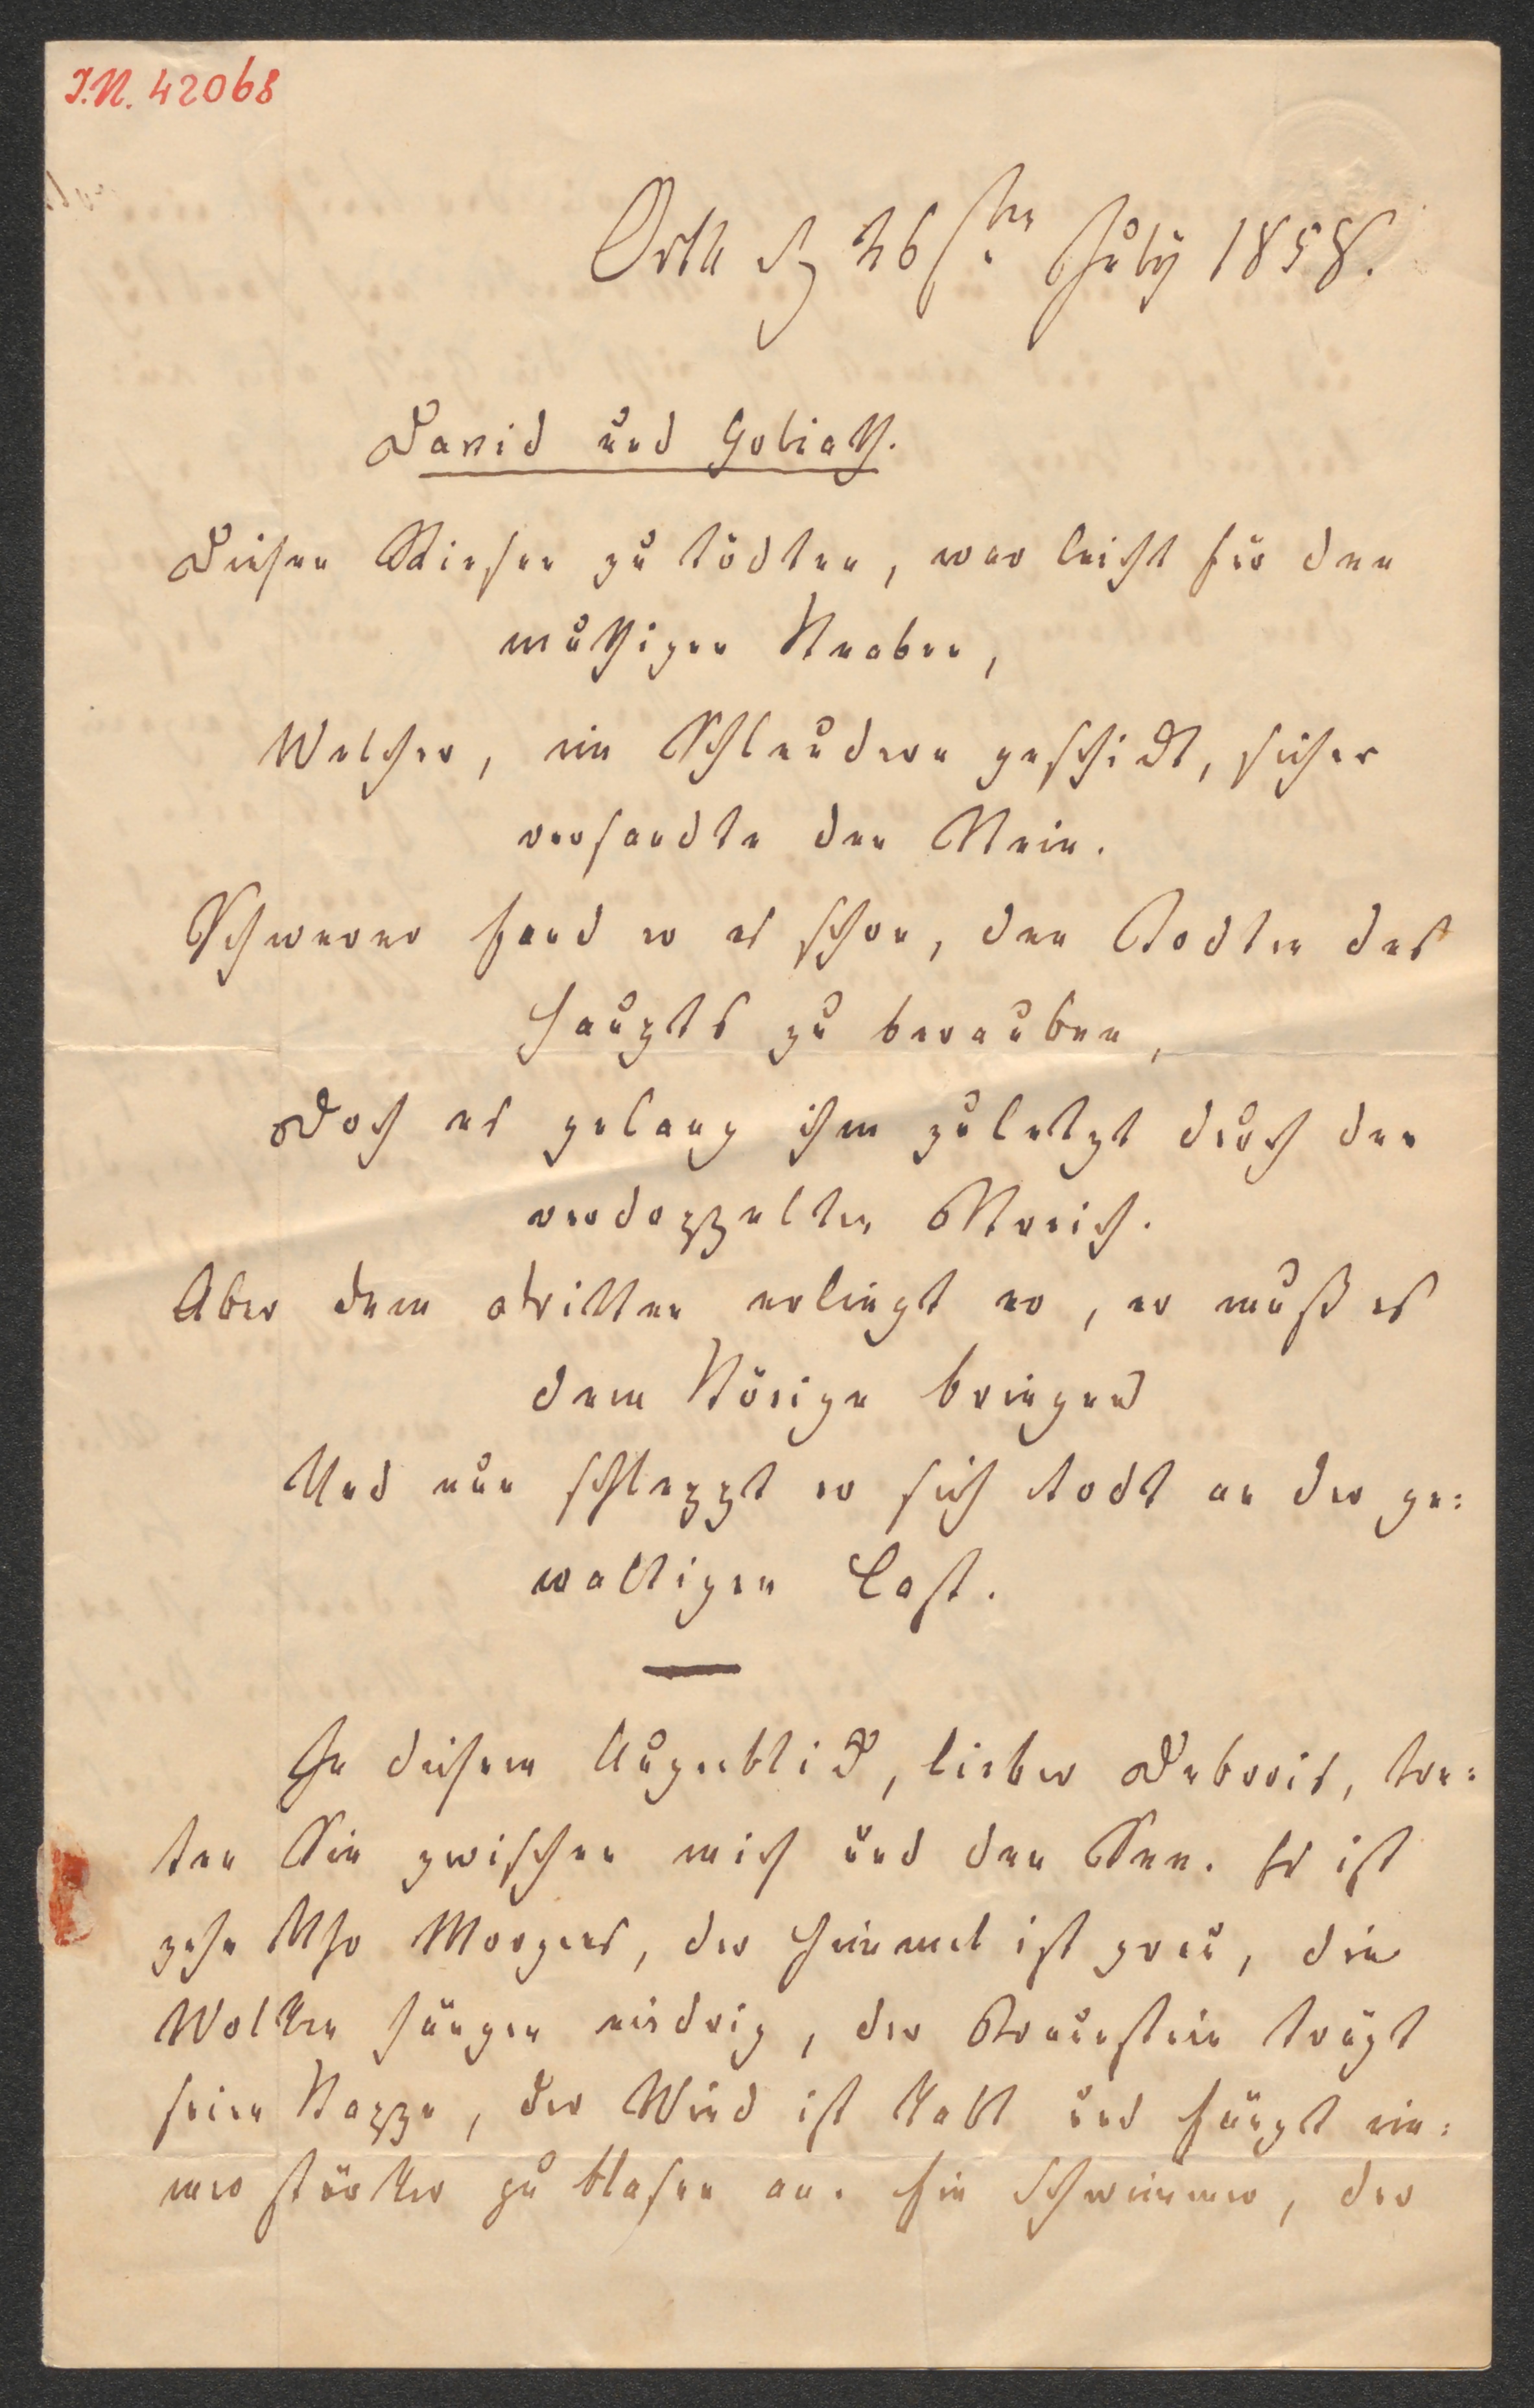 I.N. 42068
Orth d 26sten July 1858.
David und Goliath.
Diesen Riesen zu tödten, war leicht für den
muthigen Knaben,
Welcher, im Schleudern geschickt, sicher
versandte den Stein.
Schwerer fand er es schon, den Todten des
Haupts zu berauben,
Doch es gelang ihm zuletzt durch den
verdoppelten Streich.
Aber dem dritten erliegt er, er muß es
dem König bringen
Und nun schleppt er sich todt an der ge:
waltigen Last.
In diesem Augenblick, lieber Debrois, tre:
ten Sie zwischen mich und den See. Es ist
zehn Uhr Morgens, der Himmel ist grau, die
Wolken hängen niedrig, der Traunstein trägt
seine Kappe, der Wind ist kalt und fängt im:
mer stärker zu blasen an. Ein Schwimmer, der